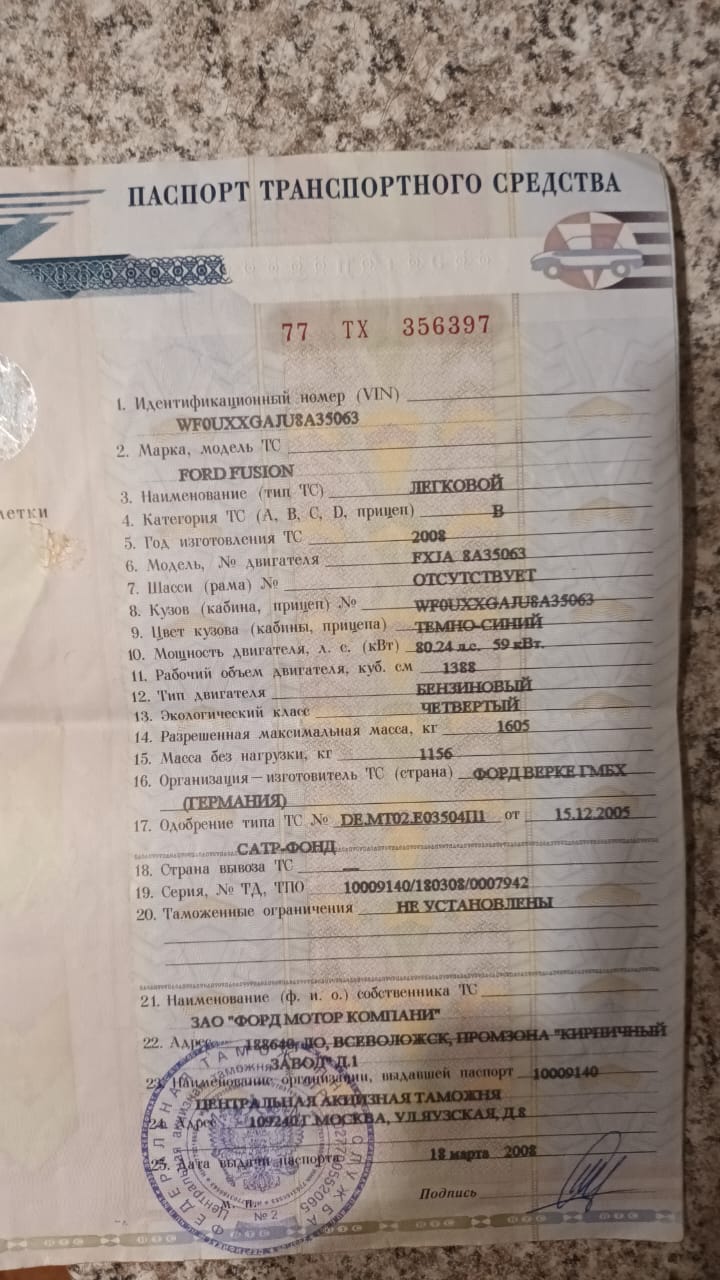 ПАСПОРТ ТРАНСПОРТНОГО СРЕДСТВА
77 ТХ 356397
1. Идентификационный номер (VIN)
WF0UXXGAJU8A35063
2. Марка, модель ТС
FORD FUSION
3. Наименование (тип ТС) ЛЕГКОВОЙ
4. Категория ТС (A, B, C, D, прицеп) B
5. Год изготовления ТС 2008
6. Модель, № двигателя FXJA 8A35063
7. Шасси (рама) № ОТСУТСТВУЕТ
8. Кузов (кабина, прицеп) № WF0UXXGAJU8A35063
9. Цвет кузова (кабины, прицепа) ТЕМНО-СИНИЙ
10. Мощность двигателя, л. с. (кВт) 80.24 л.с. 59 кВт.
11. Рабочий объем двигателя, куб. см 1388
12. Тип двигателя БЕНЗИНОВЫЙ
13. Экологический класс ЧЕТВЕРТЫЙ
14. Разрешенная максимальная масса, кг 1605
15. Масса без нагрузки, кг 1156
16. Организация—изготовитель ТС (страна) ФОРД ВЕРКЕ ГМБХ
(ГЕРМАНИЯ)
17. Одобрение типа ТС № DE.MT02.E03504П1 от 15.12.2005
САТР-ФОНД
18. Страна вывоза ТС —
19. Серия, № ТД, ТПО 10009140/180308/0007942
20. Таможенные ограничения НЕ УСТАНОВЛЕНЫ
21. Наименование (ф. и. о.) собственника ТС
ЗАО "ФОРД МОТОР КОМПАНИ"
22. Адрес 188640, ЛО, ВСЕВОЛОЖСК, ПРОМЗОНА "КИРПИЧНЫЙ
ЗАВОД" Д.1
23. Наименование организации, выдавшей паспорт 10009140
ЦЕНТРАЛЬНАЯ АКЦИЗНАЯ ТАМОЖНЯ
24. Адрес 109240 Г.МОСКВА, УЛ.ЯУЗСКАЯ, Д.8
25. Дата выдачи паспорта 18 марта 2008
М. П.
Подпись
№ 2